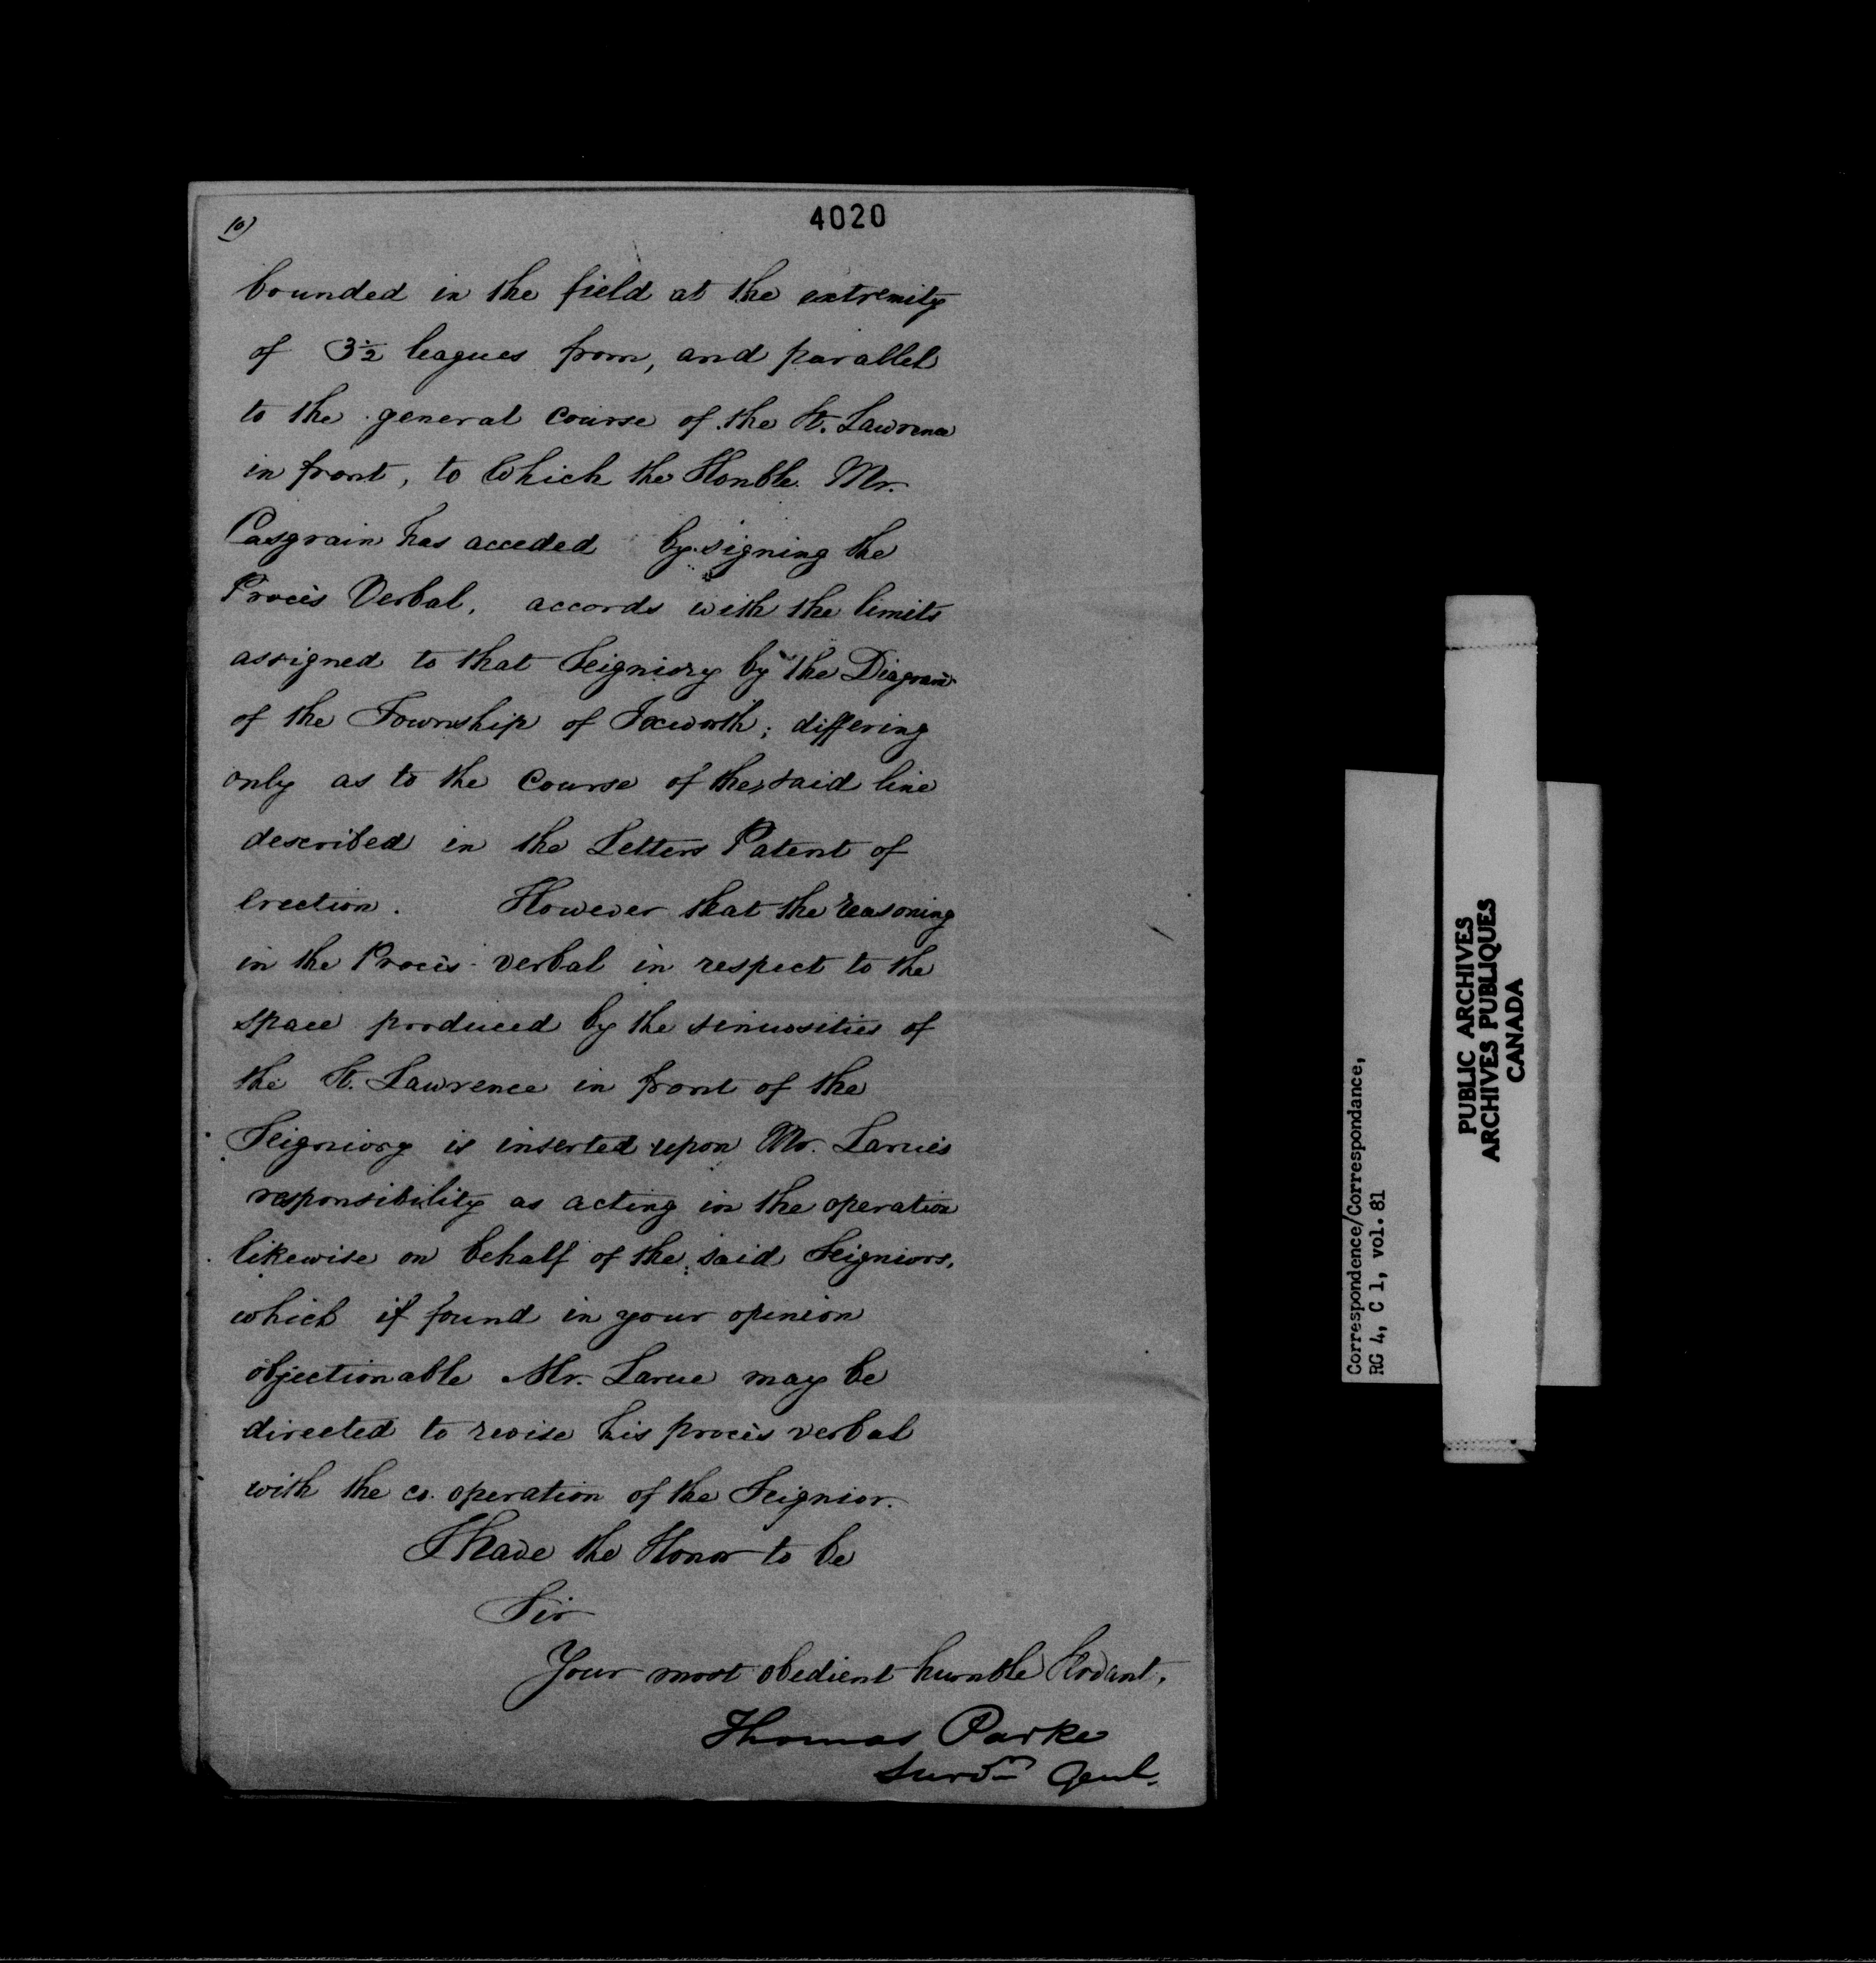 10)
4020
bounded in the field at the extremity
of 3½ leagues from, and parallel
to the general course of the St. Lawrence
in front, to which the Honble. Mr.
Casgrain has acceded by signing the
Procès Verbal, accords with the limits
assigned to that Seigniory by the Diagram
of the Township of Ixworth; differing
only as to the Course of the said line
described in the Letters Patent of
erection. However that the reasoning
in the Procès-verbal in respect to the
space produced by the sinuosities of
the St. Lawrence in front of the
Seigniory is inserted upon Mr. Larue's
responsibility as acting in the operation
likewise on behalf of the said Seigniors,
which if found in your opinion
objectionable Mr. Larue may be
directed to revise his procès verbal
with the co. operation of the Seignior.
I have the Honor to be
Sir
Your most obedient humble Servant,
Thomas Parke
Survr. Genl.
Correspondence/Correspondance,
RG 4, C 1, vol. 81
PUBLIC ARCHIVES
ARCHIVES PUBLIQUES
CANADA